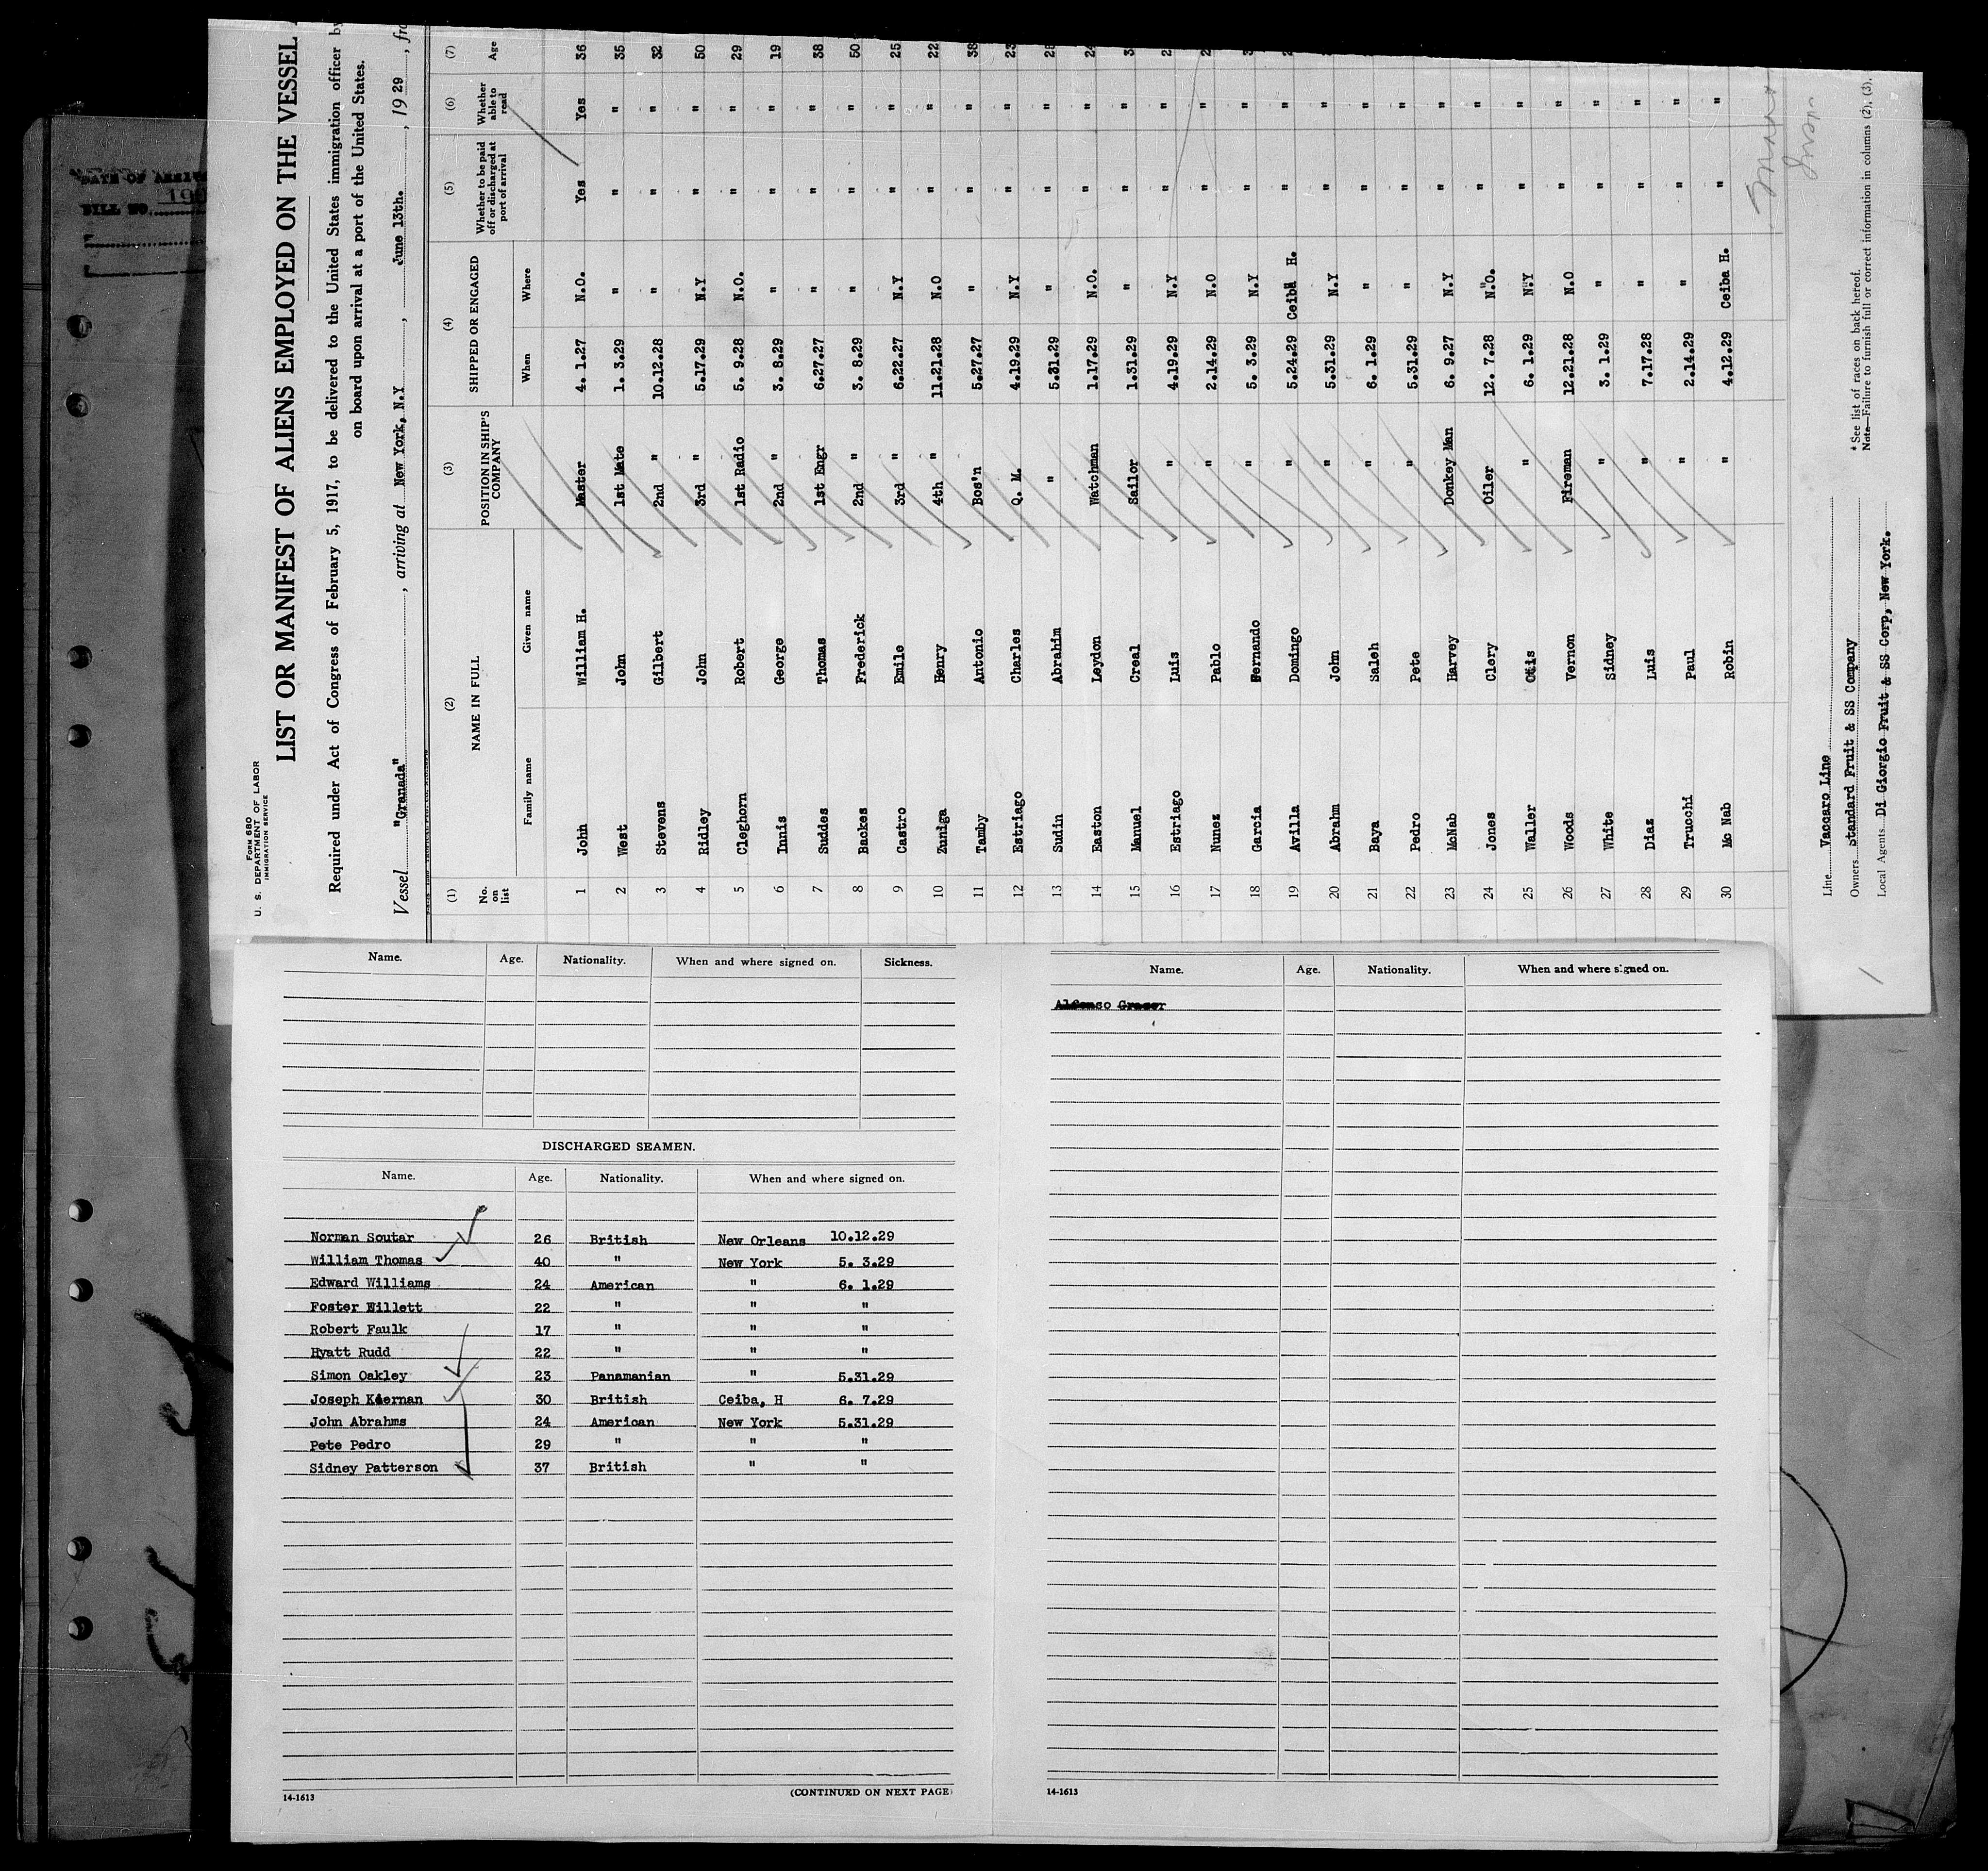 DATE OF
BILL NO.
FORM 680
U. S. DEPARTMENT OF LABOR
IMMIGRATION SERVICE
LIST OR MANIFEST OF ALIENS EMPLOYED ON THE VESSEL
Required under Act of Congress of February 5, 1917, to be delivered to the United States immigration officer by
on board upon arrival at a port of the United States.
Vessel "Granada", arriving at New York, N.Y, June 13th., 1929, fro
(1) (2) (3) (4) (5) (6) (7)
No. on list NAME IN FULL POSITION IN SHIP'S COMPANY SHIPPED OR ENGAGED Whether to be paid off or discharged at port of arrival Whether able to read Age
Family name Given name When Where
1 John William H. Master 4. 1.27 N.O. Yes Yes 36
2 West John 1st Mate 1. 3.29 " " " 35
3 Stevens Gilbert 2nd " 10.12.28 " " " 32
4 Ridley John 3rd " 5.17.29 N.Y " " 50
5 Cleghorn Robert 1st Radio 5. 9.28 N.O. " " 29
6 Innis George 2nd " 3. 8.29 " " " 19
7 Suddes Thomas 1st Engr 6.27.27 " " " 38
8 Backes Frederick 2nd " 3. 8.29 " " " 50
9 Castro Emile 3rd " 6.22.27 N.Y " " 25
10 Zuniga Henry 4th " 11.21.28 N.O " " 22
11 Tamby Antonio Bos'n 5.27.27 " " " 38
12 Estriago Charles Q. M. 4.19.29 N.Y " " 23
13 Sudin Abrahim " 5.31.29 " " "
14 Easton Leydon Watchman 1.17.29 N.O. " " 24
15 Manuel Creal Sailor 1.31.29 " " "
16 Estriago Luis " 4.19.29 N.Y " "
17 Nunez Pablo " 2.14.29 N.O " "
18 Garcia Fernando " 5. 3.29 N.Y " "
19 Avilla Domingo " 5.24.29 Ceiba H. " "
20 Abrahm John " 5.31.29 N.Y " "
21 Baya Saleh " 6. 1.29 " " "
22 Pedro Pete " 5.31.29 " " "
23 McNab Harvey Donkey Man 6. 9.27 N.Y " "
24 Jones Clery Oiler 12. 7.28 N.O. " "
25 Waller Otis " 6. 1.29 N.Y " "
26 Woods Vernon Fireman 12.21.28 N.O " "
27 White Sidney " 3. 1.29 " " "
28 Diaz Luis " 7.17.28 " " "
29 Trucchi Paul " 2.14.29 " " "
30 Mc Nab Robin " 4.12.29 Ceiba H. " "
Line Vaccaro Line
Owners Standard Fruit & SS Company
Local Agents Di Giorgio Fruit & SS Corp, New York.
* See list of races on back hereof.
Note—Failure to furnish full or correct information in columns (2), (3),
Name. Age. Nationality. When and where signed on. Sickness.
DISCHARGED SEAMEN.
Name. Age. Nationality. When and where signed on.
Norman Soutar 26 British New Orleans 10.12.29
William Thomas 40 " New York 5. 3.29
Edward Williams 24 American " 6. 1.29
Foster Willett 22 " " "
Robert Faulk 17 " " "
Hyatt Rudd 22 " " "
Simon Oakley 23 Panamanian " 5.31.29
Joseph Kiernan 30 British Ceiba, H 6. 7.29
John Abrahms 24 American New York 5.31.29
Pete Pedro 29 " " "
Sidney Patterson 37 British " "
14-1613 (CONTINUED ON NEXT PAGE)
Name. Age. Nationality. When and where signed on.
Alfonso
14-1613